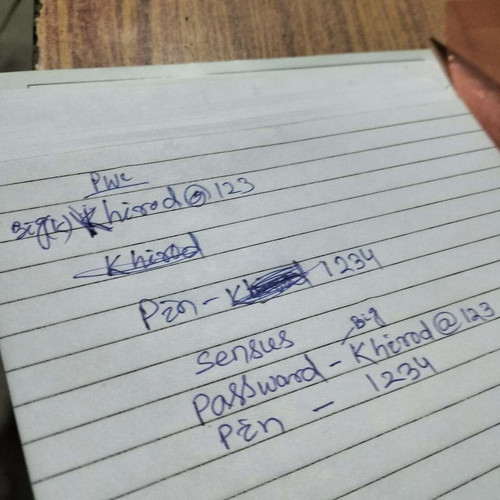 PWC
Big(K) Khirod@123
Khirod
Pin - 1234
Sensus
Big
Password - Khirod@123
Pin - 1234